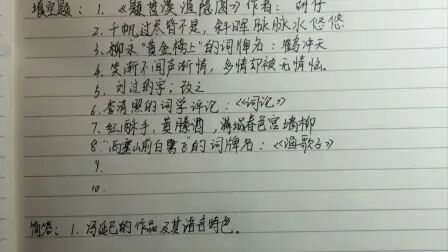 填空题：1.《题苕溪渔隐图》作者：胡仔
2. 千帆过尽皆不是，斜晖脉脉水悠悠
3. 柳永"黄金榜上"的词牌名：鹤冲天
4. 笑渐不闻声渐悄，多情却被无情恼。
5. 刘过的字：改之
6. 李清照的词学评论：《词论》
7. 红酥手，黄縢酒，满城春色宫墙柳
8. "西塞山前白鹭飞"的词牌名：《渔歌子》
9.
10.
简答：1. 冯延巳的作品及其语言特色。